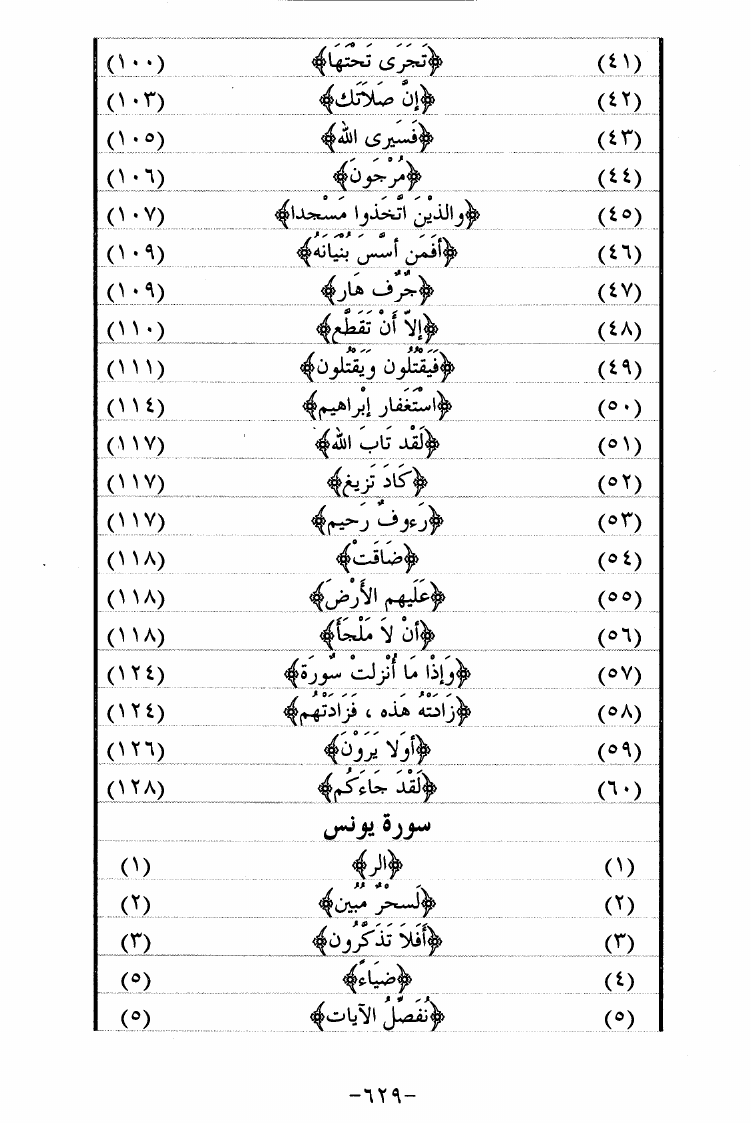 (٤١) ﴿تَجرَى تَحْتَهَا﴾ (١٠٠)
(٤٢) ﴿إنَّ صَلَاتَك﴾ (١٠٣)
(٤٣) ﴿فَسَيرى الله﴾ (١٠٥)
(٤٤) ﴿مُرْجَونَ﴾ (١٠٦)
(٤٥) ﴿والذيْنَ اتَّخَذوا مَسْجدا﴾ (١٠٧)
(٤٦) ﴿أفَمَن أسَّسَ بُنْيَانَهُ﴾ (١٠٩)
(٤٧) ﴿جُرُف هَار﴾ (١٠٩)
(٤٨) ﴿إلاّ أَنْ تَقَطَّع﴾ (١١٠)
(٤٩) ﴿فَيَقْتُلُون وَيَقْتُلون﴾ (١١١)
(٥٠) ﴿اسْتغَفار إبْراهيم﴾ (١١٤)
(٥١) ﴿لَقْد تَابَ الله﴾ (١١٧)
(٥٢) ﴿كَادَ تَزيغ﴾ (١١٧)
(٥٣) ﴿رَءوفٌ رَحيم﴾ (١١٧)
(٥٤) ﴿ضَاقَتْ﴾ (١١٨)
(٥٥) ﴿عَلَيهم الأَرْضَ﴾ (١١٨)
(٥٦) ﴿أنْ لاَ مَلْجَأَ﴾ (١١٨)
(٥٧) ﴿وَإذَا مَا أُنْزلتْ سُورَة﴾ (١٢٤)
(٥٨) ﴿زَادَتْهُ هَذه ، فَزَادَتْهُم﴾ (١٢٤)
(٥٩) ﴿أوَلا يَرَوْنَ﴾ (١٢٦)
(٦٠) ﴿لَقْدَ جَاءَكُم﴾ (١٢٨)
سورة يونس
(١) ﴿الر﴾ (١)
(٢) ﴿لَسحْرٌ مُبين﴾ (٢)
(٣) ﴿أَفَلاَ تَذَكَّرُون﴾ (٣)
(٤) ﴿ضيَاءً﴾ (٥)
(٥) ﴿نُفَصِّلُ الآيات﴾ (٥)
-٦٢٩-